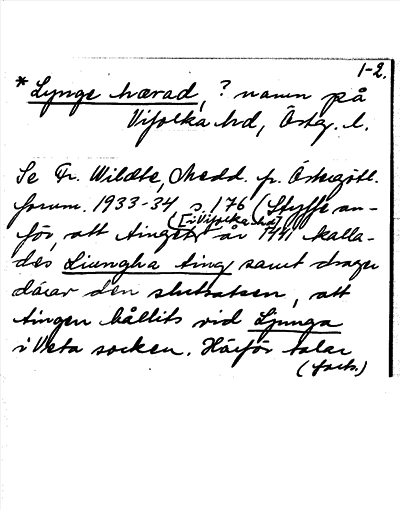 1-2.
*Lynge hærad, ? namn på
Vifolka hd, Östg. l.
Se Fr. Wildte, Medd. fr. Östergötl.
fornm. 1933-34 s. 176 (Styffe an-
[i Vifolka hd]
för, att tinget år 1441 kalla-
des Liungha ting samt drager
därav den slutsatsen, att
tingen hållits vid Ljunga
i Veta socken. Härför talar
(forts.)